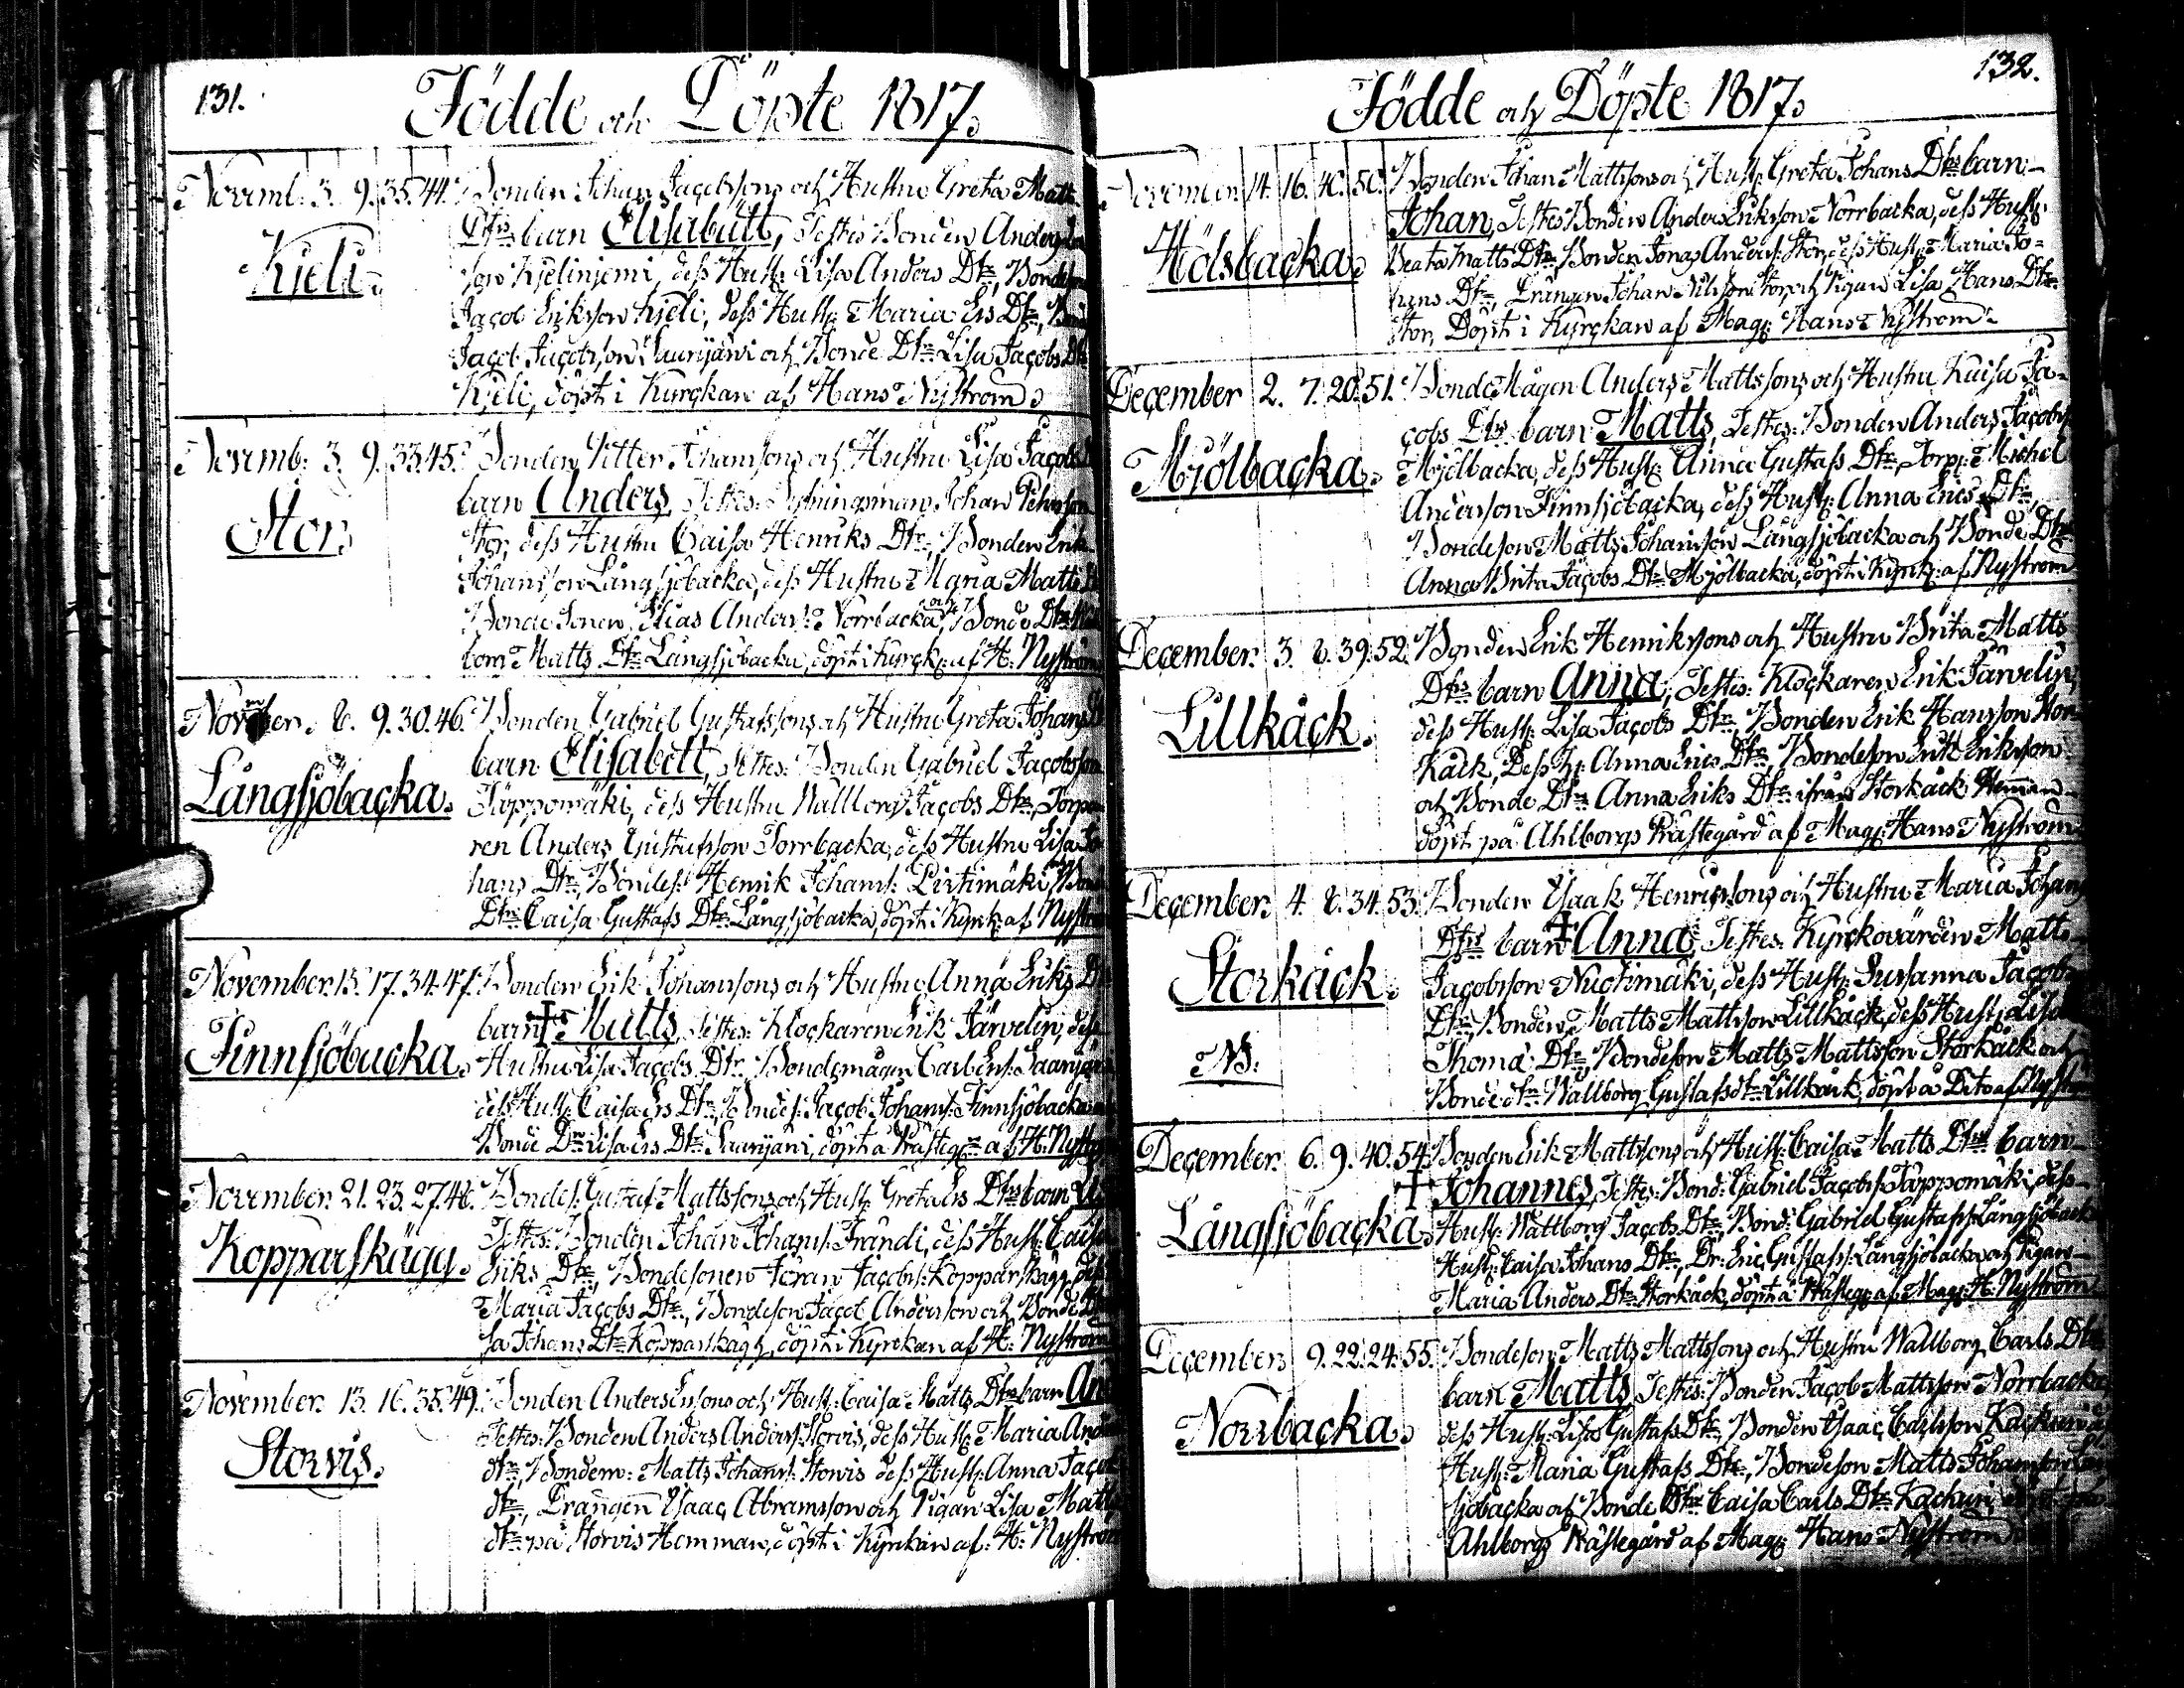 131.
Födde och Döpte 1817.
Novemb: 3. 9. 35. 44. Bonden Johan Jacobssons och Hustru Greta Matts
Kjeli.
Dtrs barn Elisabett, Testes: Bonden Anders
son Kjelinjemi, dess Hust: Lisa Anders Dtr,
Jacob Eriksson Kjeli, dess Hust: Maria Ers Dtr,
Jacob Jacobsson Saarijärvi och Bonde Dtr Lisa Jacobs
Kjeli, döpt i Kyrckan af Hans Nyström.
Novemb: 3. 9. 33. 45. Bonden Petter Johanssons och Hustru Lisa Jacobs
Stor.
barn Anders, Testes: Johan
Stor, dess Hustru Caisa Henriks Dtr, Bonden Erik
Johansson Långsjöbacka, dess Hustru Maria Matts
Bonde Sonen Elias Anders: Norrbacka, och Bonde Dtr
Matts Dtr Långsjöbacka, döpt i Kyrck: af H: Nyström
November. 8. 9. 30. 46. Bonden Gabriel Gustafssons och Hustru Greta Johans
Långsjöbacka.
barn Elisabett, Testes: Bonden Gabriel Jacobsson
Täppomäki, dess Hustru Wallborg Jacobs Dtr, Torpa
ren Anders Gustafsson Torrbacka, dess Hustru Lisa Jo
hans Dtr, Bondes: Henrik Johans: och
Dtr Caisa Gustafs Dtr Långsjöbacka, döpt i Kyrck: af Nyström
November. 15. 17. 34. 47. Bonden Erik Johanssons och Hustru Anna Eriks
Finnsjöbacka.
barn Matts, Testes: Klockaren Erik Järvelin, dess
Hustru Lisa Jacobs Dtr, Bondemågen Carl Ers:
dess Hust: Caisa Ers Dtr, Bondes: Jacob Johans: Finnsjöbacka
Bonde Dtr Lisa Ers Dtr Saarijärvi, döpt å Prästeg: af H: Nyström
November. 21. 23. 27. 48. Bondes: Gustaf Mattssons och Hust: Greta Ers Dtrs barn
Kopparskägg.
Testes: Bonden Johan Johans: Frändi, dess Hust: Caisa
Eriks Dtr, Bondesonen Jöran Jacobs: Kopparskägg, dess
Maria Jacobs Dtr, Bondeson Jacob Andersson och Bonde
sa Johans Dtr Kopparskägg, döpt i Kyrckan af H: Nyström
November. 13. 16. 35. 49. Bonden Anders Erssons och Hust: Caisa Matts Dtrs barn
Storvis.
Testes: Bonden Anders Anders: Storvis, dess Hust: Maria
dtr, Bondem: Matts Johans: Storvis dess Hust: Anna Jacobs
dtr, Drängen Isaac Abramsson och Pigan Lisa Matts
dtr på Storvis Hemman, döpt i Kyrckan af H: Nyström
132.
Födde och Döpte 1817.
November. 14. 16. 40. 50. Bonden Johan Mattssons och Hust: Greta Johans Dtrs barn
Hölsbacka.
Johan, Testes: Bonden Anders Eriksson Norrbacka, dess Hust:
Beata Matts Dtr, Bonden Jonas Anders: Stor, dess Hust: Maria Jo=
hans Dtr, Drängen Johan Nilsson Stor, och Pigan Lisa Hans Dtr
Stor, Döpt i Kyrckan af Mag: Hans Nyström
December 2. 7. 20. 51. BondeMågen Anders Mattssons och Hustru Kaisa Ja-
Mjölbacka.
cobs Dtrs barn Matts, Testes: Bonden Anders Jacobs
Mjölbacka, dess Hust: Anna Gustafs Dtr, Torp: Michel
Andersson Finnsjöbacka, dess Hust: Anna Erics Dtr,
Bondeson Matts Johansson Långsjöbacka och Bonde Dtr
Anna Brita Jacobs Dtr Mjölbacka, döpt i Kyrck: af Nyström
December. 3. 8. 39. 52. Bonden Erik Henrikssons och Hustru Brita Matts
Lillkäck.
Dtrs barn Anna, Testes: Klockaren Erik Järvelin,
dess Hust: Lisa Jacobs Dtr, Bonden Erik Hansson Stor=
Käck, Dess H: Anna Erics Dtr, Bondeson Erik Eriksson
och Bonde Dtr Anna Eriks Dtr ifrån Storkäck Hemman
döpt på Ahlborgs Prästegård af Mag: Hans Nyström
December. 4. 8. 34. 53. Bonden Isaak Henrikssons och Hustru Maria Johans
Storkäck.
NB.
Dtrs barn Anna, Testes: Kyrckovärden Matts
Jacobsson Nuotimäki, dess Hust: Susanna Jacobs
Dtr, Bonden Matts Mattsson Lillkäck, dess Hust: Lisa
Thoma: Dtr, Bondeson Matts Mattsson Storkäck och
Bonde dtr Wallborg Gustafs dtr Lillkäck, döpt å Dito af Nyström
December. 6. 9. 40. 54. Bonden Erik Mattssons och Hust: Caisa Matts Dtrs barn
Långsjöbacka.
Johannes, Testes: Bond: Gabriel Jacobs: Täppomäki, dess
Hust: Wallborg Jacobs Dtr, Bond: Gabriel Gustafs: Långsjöbacka
Hust: Caisa Johans Dtr, Dr: Eric Gustafs: Långsjöbacka och Pigan
Maria Anders Dtr Storkäck, döpt å Prästeg: af Mag: H: Nyström
December. 9. 22. 24. 55. Bondeson Matts Mattssons och Hustru Wallborg Carls Dtrs
Norrbacka.
barn Matts, Testes: Bonden Jacob Mattsson Norrbacka
dess Hust: Lisa Gustafs Dtr, Bonden Isaac Carlsson
Hust: Maria Gustafs Dtr, Bondeson Matts Johansson
sjöbacka och Bonde Dtr Caisa Carls Dtr Kackuri,
Ahlborgs Prästegård af Mag: Hans Nyström